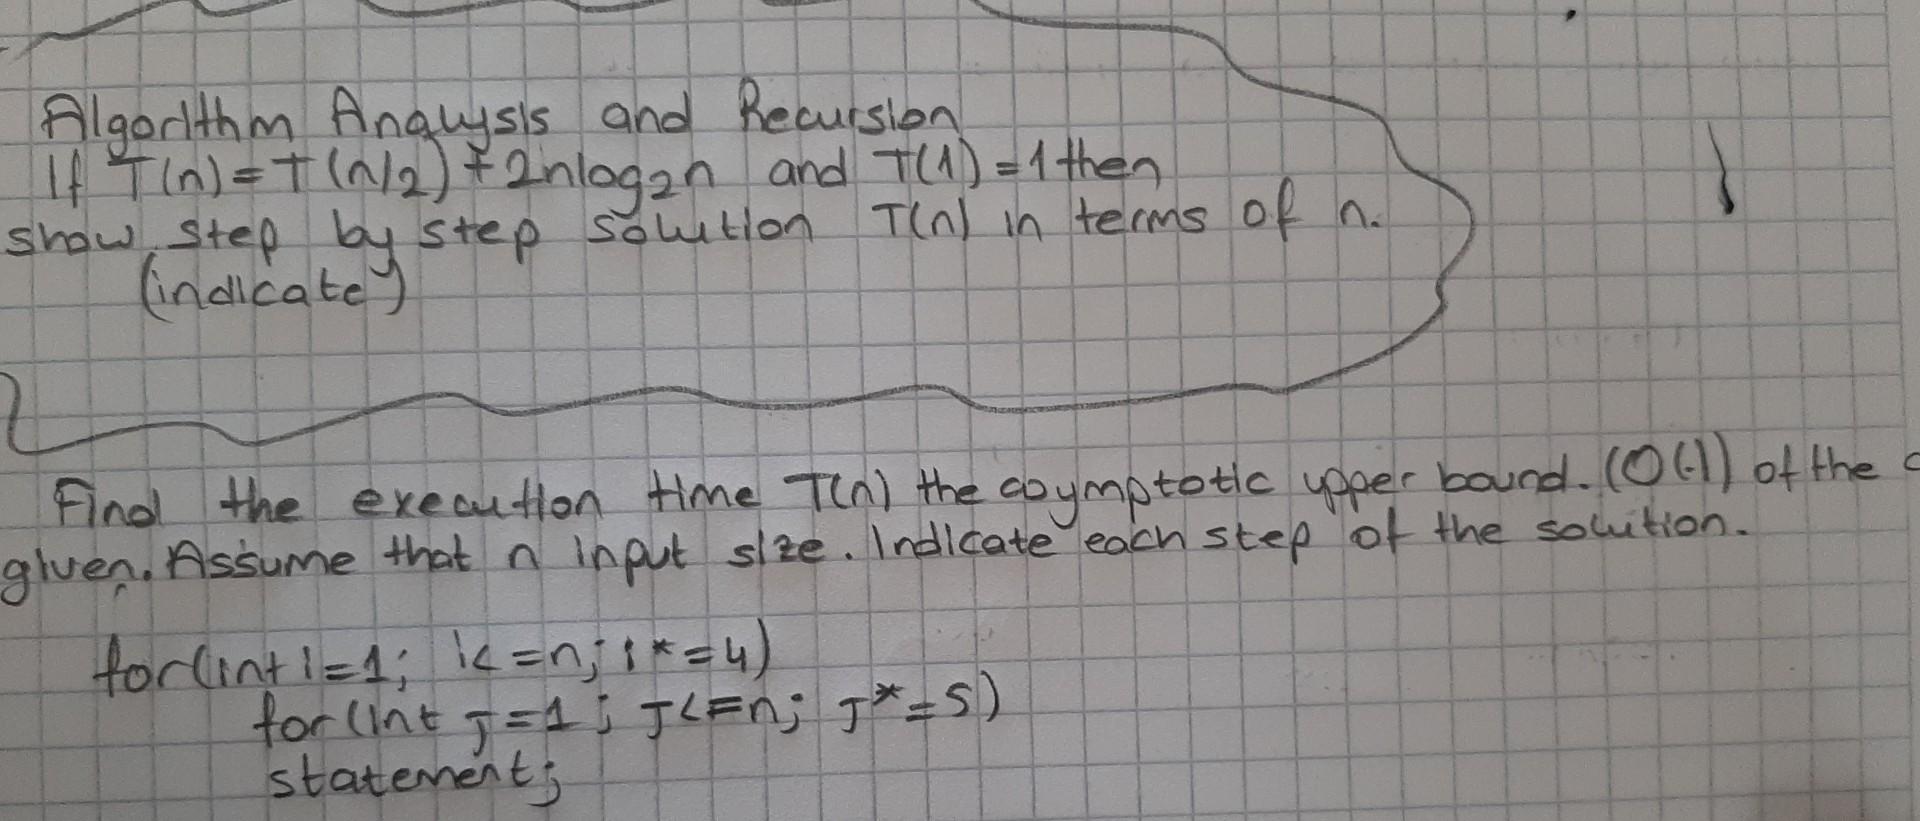 Algorithm Analysis and Recursion
If T(n)=T(n/2)+2nlog2n and T(1)=1 then
show step by step solution T(n) in terms of n.
(indicate)
Find the execution time T(n) the asymptotic upper bound. (O(.)) of the
given. Assume that n input size. Indicate each step of the solution.
for(int i=1; i<=n; i*=4)
for(int j=1; j<=n; j*=5)
statement;